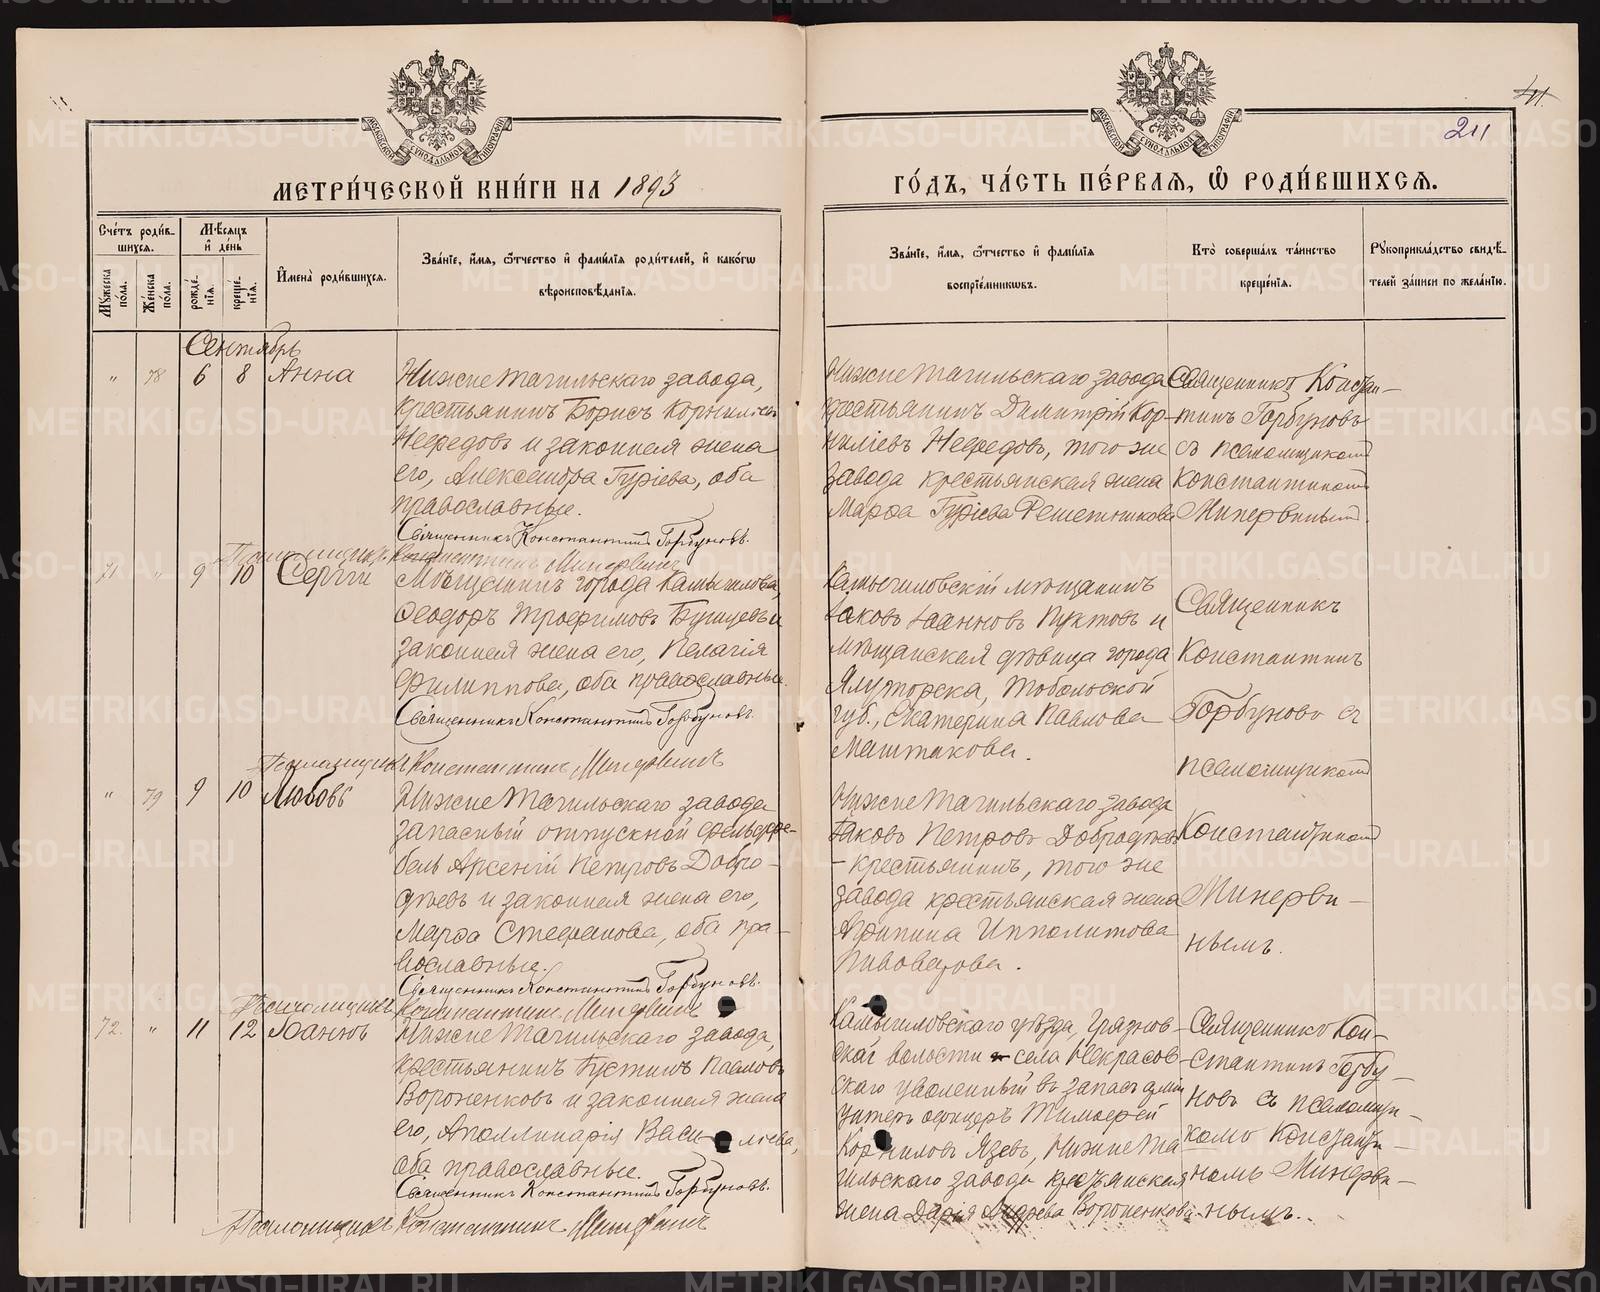 41.
211
МЕТРИ́ЧЕСКОЙ КНИ́ГИ НА 1893
ГО́ДЪ, ЧА́СТЬ ПЕ́РВАѦ, Ѽ РОДИ́ВШИХСѦ.
Сче́тъ роди́вшихся.
Мѣ́сяцъ и де́нь
Му́жеска по́ла.
Же́нска по́ла.
рожде́нїя.
креще́нїя.
И́мена роди́вшихся.
Зва́нїе, и́мя, ѻ́тчество и фами́лїя роди́телей, и како́гѡ
вѣроисповѣ́данїя.
Зва́нїе, и́мя, ѻ́тчество и фами́лїя
воспрїе́мниковъ.
Кто̀ соверша́лъ та́инство
креще́нїя.
Рꙋкоприкла́дство свидѣ́-
телей за́писи по жела́нїю.
Сентябрь
" 78 6 8 Анна
Нижнетагильскаго завода,
крестьянинъ Борисъ Корниліевъ
Нефедовъ и законная жена
его, Александра Гуріева, оба
православные.
Священникъ Константинъ Горбуновъ.
Псаломщикъ Константинъ Минервинъ
Нижнетагильскаго завода
крестьянинъ Димитрій Кор-
ниліевъ Нефедовъ, того же
завода крестьянская жена
Марфа Гуріева Решетникова
Священникъ Констан-
тинъ Горбуновъ
съ псаломщикомъ
Константиномъ
Минервинымъ.
71 " 9 10 Сергій
Мѣщанинъ города Камышлова,
Феодоръ Трофимовъ и
законная жена его, Пелагія
Филиппова, оба православные.
Священникъ Константинъ Горбуновъ.
Псаломщикъ Константинъ Минервинъ
Камышловскій мѣщанинъ
Іаковъ Іоанновъ Пуктовъ и
мѣщанская дѣвица города
Ялуторска, Тобольской
губ., Екатерина Павлова
Маштакова.
Священникъ
Константинъ
Горбуновъ съ
псаломщикомъ
Константиномъ
Минерви-
нымъ.
" 79 9 10 Любовь
Нижнетагильскаго завода
запасный отпускной фельдфе-
бель Арсеній Петровъ Добро-
дѣевъ и законная жена его,
Марфа Стефанова, оба пра-
вославные.
Священникъ Константинъ Горбуновъ.
Псаломщикъ Константинъ Минервинъ
Нижнетагильскаго завода
Іаковъ Петровъ Добродѣевъ
- крестьянинъ, того же
завода крестьянская жена
Агрипина Ипполитова
Пивоварова.
72. " 11 12 Іоаннъ
Нижнетагильскаго завода,
крестьянинъ Іустинъ Павловъ
Вороненковъ и законная жена
его, Аполлинарія Васи-ліева,
оба православные.
Священникъ Константинъ Горбуновъ.
Псаломщикъ Константинъ Минервинъ
Камышловскаго уѣзда, Грязнов-
ской волости села Некрасов-
скаго уволенный въ запасъ арміи
унтеръ офицеръ Тимофей
Корниловъ Язевъ, Нижнета-
гильскаго завода крестьянская
жена Дарія Андреева Вороненкова
Священникъ Кон-
стантинъ Горбу-
новъ съ псаломщи-
комъ Константи-
номъ Минерви-
нымъ.
METRIKI.GASO-URAL.RU